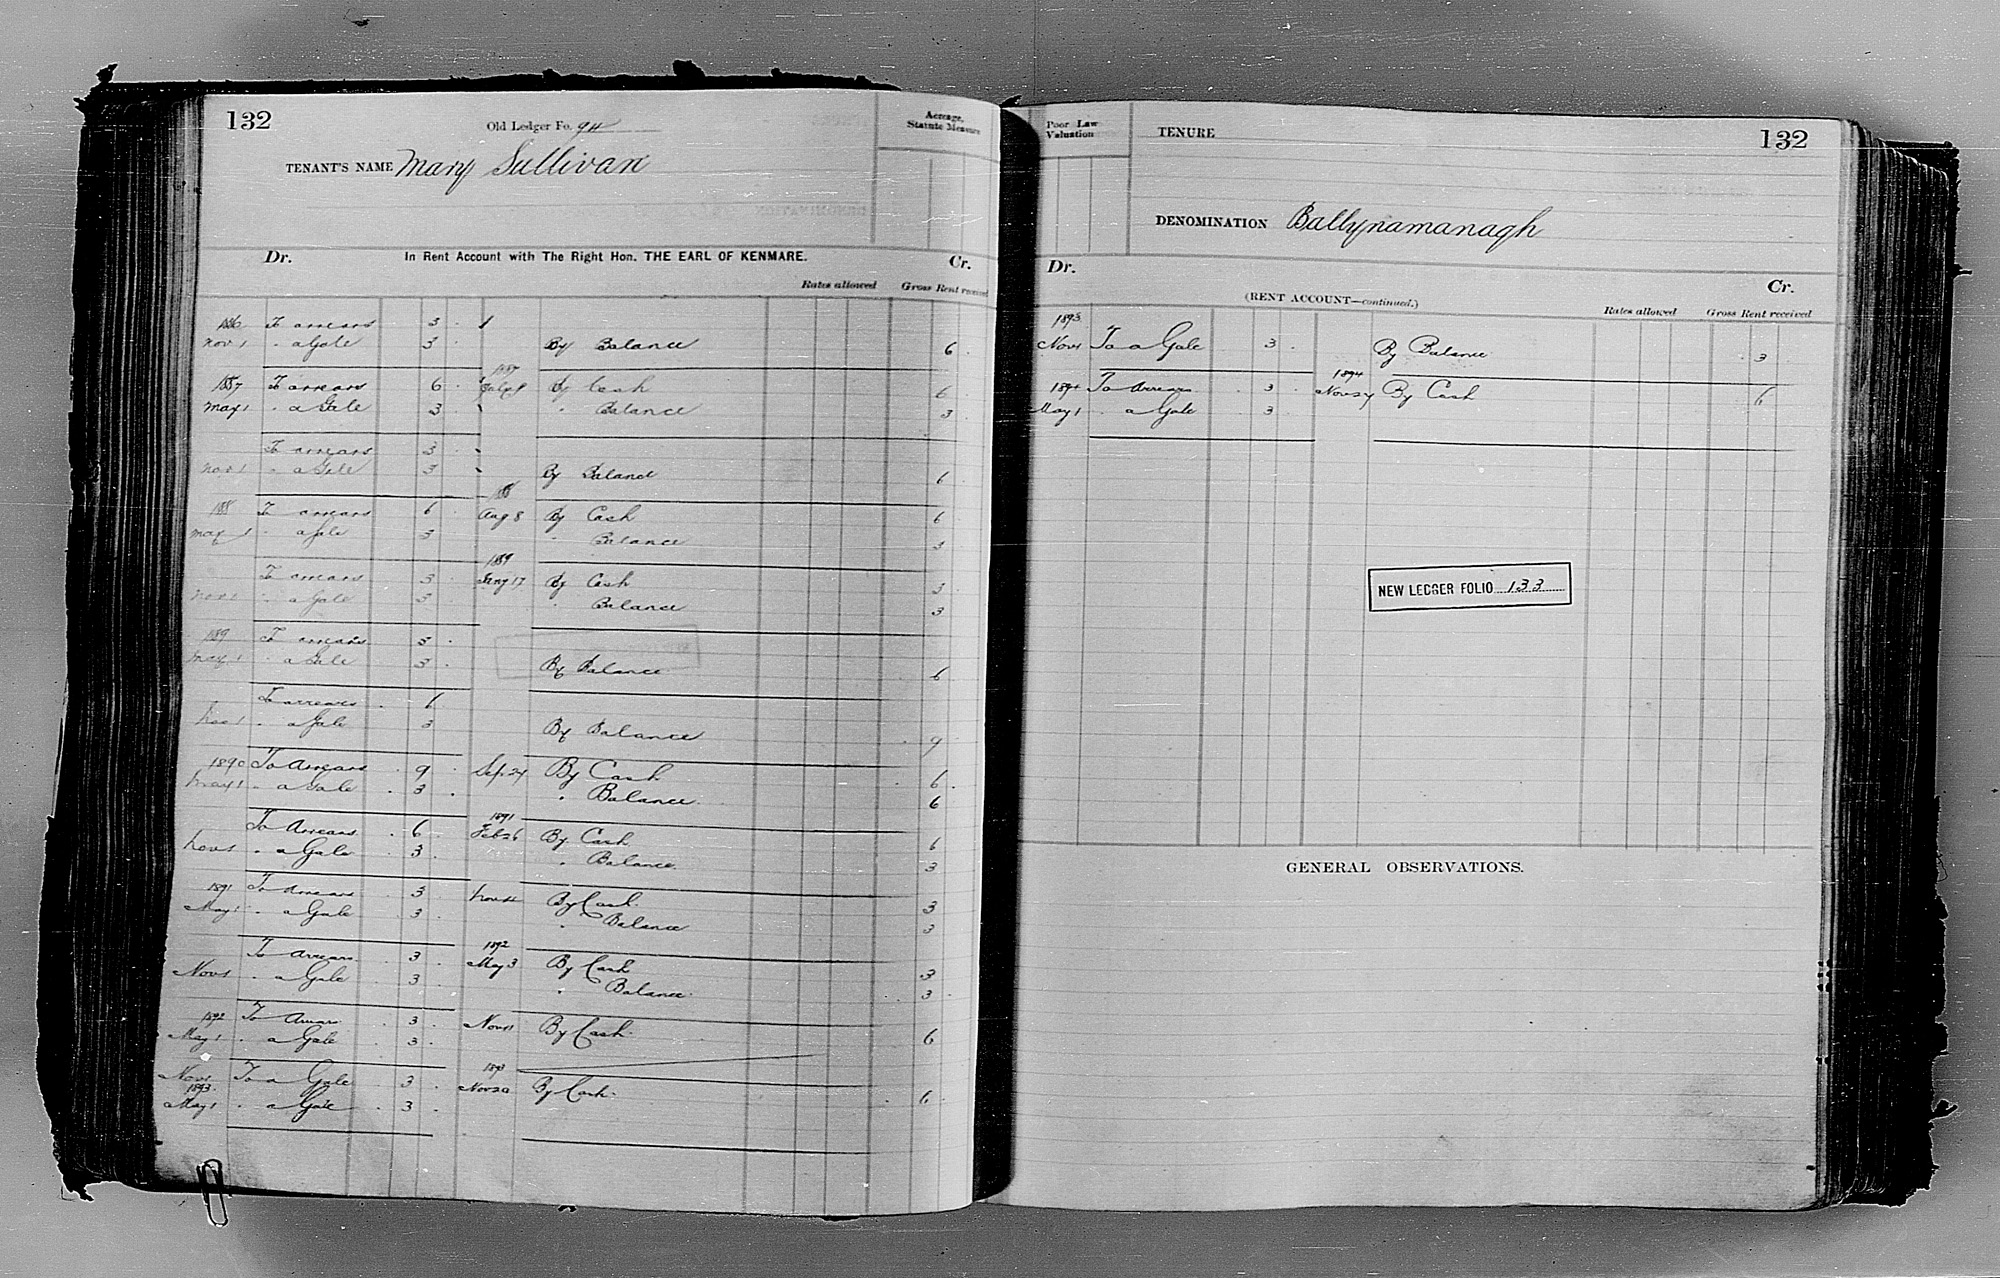 132
Old Ledger Fo. 94
Acreage, Statute Measure
TENANT'S NAME Mary Sullivan
Dr. In Rent Account with The Right Hon. THE EARL OF KENMARE. Cr.
Rates allowed Gross Rent received
1886 To arrears 3
Nov 1 " a Gale 3 By Balance 6
1887
1887 To arrears 6 By Cash 6
May 1 " a Gale 3 " Balance 3
To arrears 3
Nov 1 " a Gale 3 By Balance 6
188
188 To arrears 6 Aug 8 By Cash 6
May 1 " a Gale 3 " Balance 3
1889
To arrears 3 Jany 17 By Cash 3
Nov 1 " a Gale 3 " Balance 3
1889 To arrears 3
May 1 " a Gale 3 By Balance 6
To arrears 6
Nov 1 " a Gale 3 By Balance 9
1890 To Arrears 9 Sep. 24 By Cash 6
May 1 " a Gale 3 " Balance 6
1891
To Arrears 6 Feb 26 By Cash 6
Nov 1 " a Gale 3 " Balance 3
1891 To Arrears 3 Nov By Cash 3
May 1 " a Gale 3 " Balance 3
1892
To Arrears 3 May 3 By Cash 3
Nov 1 " a Gale 3 " Balance 3
1892 To Arrears 3 Nov 11 By Cash 6
May 1 " a Gale 3
1893
Nov 1 To a Gale 3 Nov 20 By Cash 6
1893
May 1 " a Gale 3
Poor Law Valuation
TENURE
132
DENOMINATION Ballynamanagh
Dr. Cr.
(RENT ACCOUNT—continued.)
Rates allowed Gross Rent received
1893
Nov 1 To a Gale 3 By Balance 3
1894
1894 To Arrears 3 Nov 27 By Cash 6
May 1 " a Gale 3
NEW LEDGER FOLIO 133
GENERAL OBSERVATIONS.